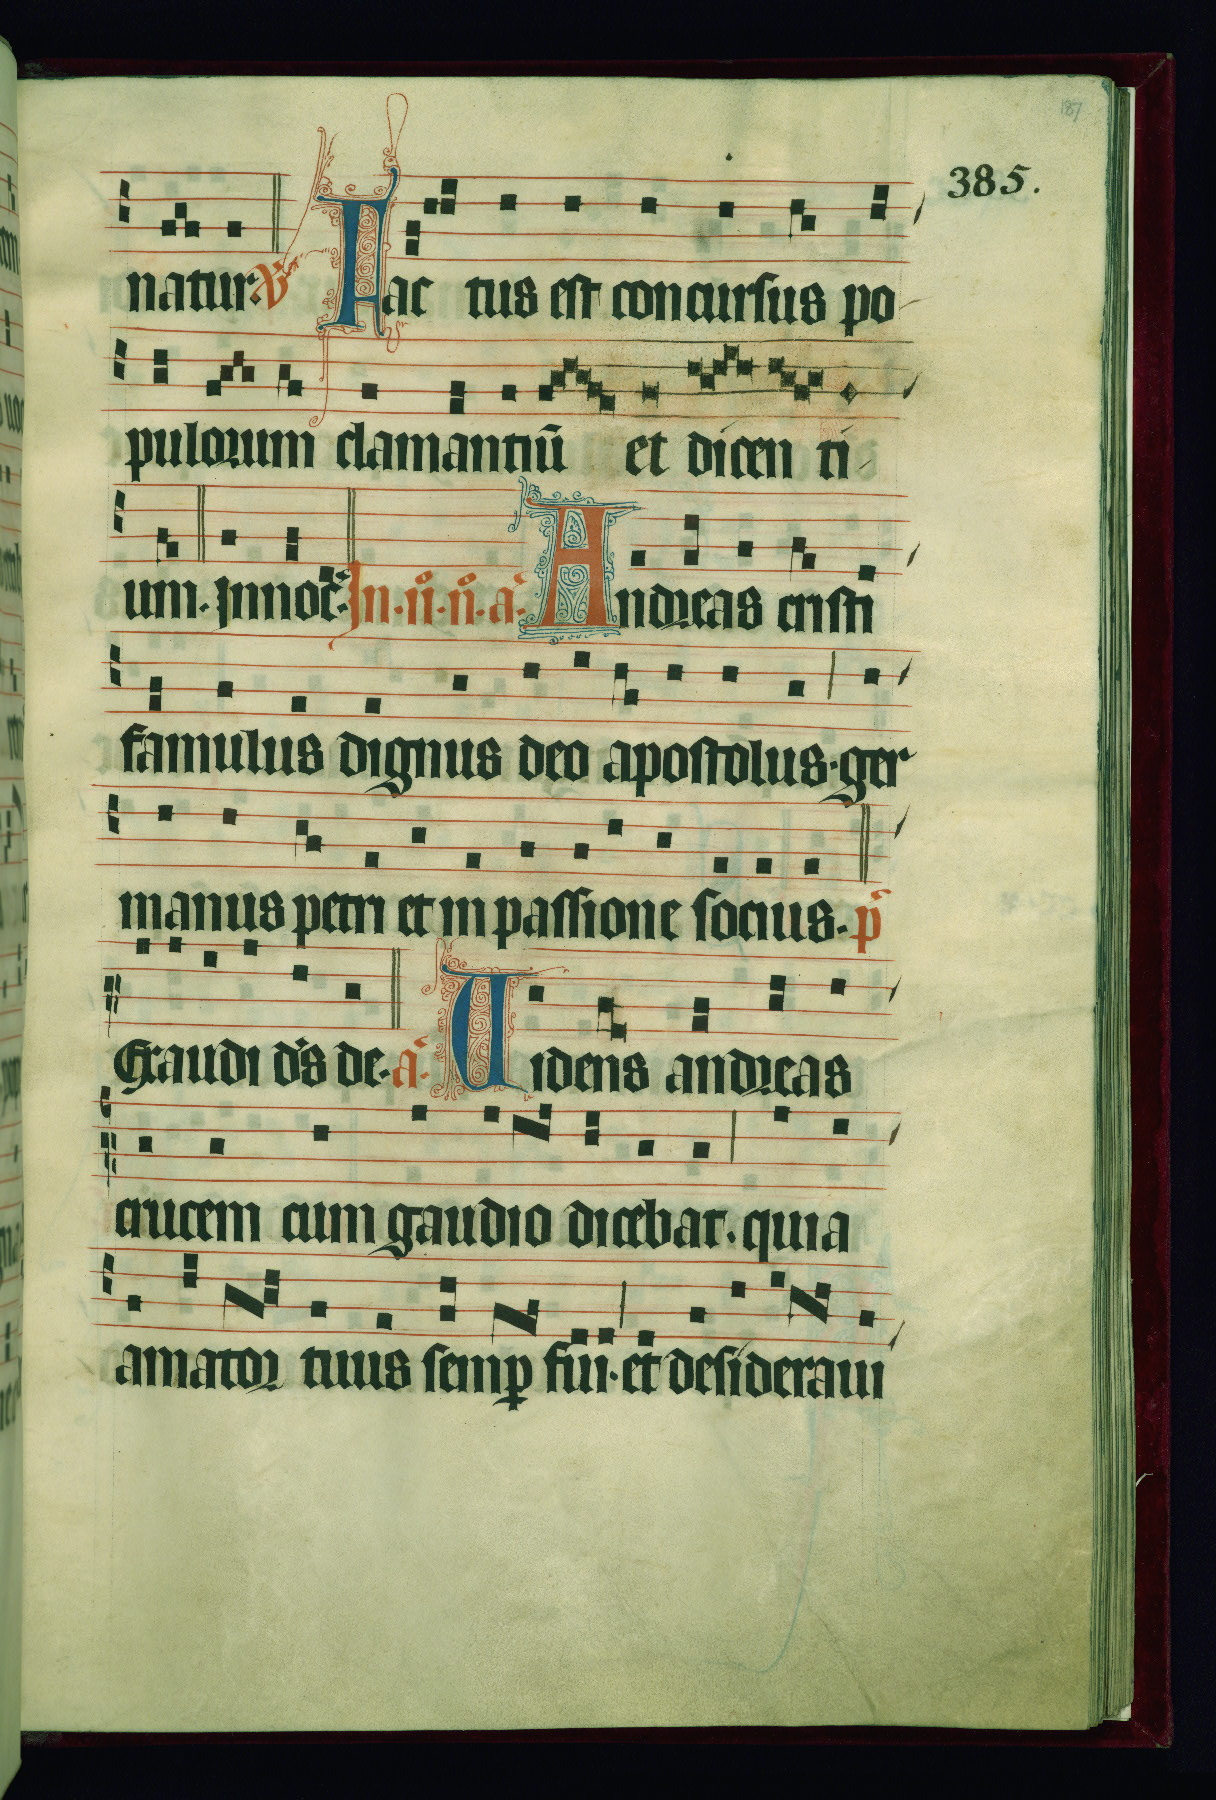 187
385.
natur. V Fac tus est concursus po
pulorum clamantiū et dicen ti
um. Innoc̄. In. iī. n̄. a. Andreas cristi
famulus dignus deo apostolus. ger
manus petri et in passione socius. p̄
Exaudi d̄s de. a. Videns andreas
crucem cum gaudio dicebat. quia
amator tuus semꝑ fui. et desideraui